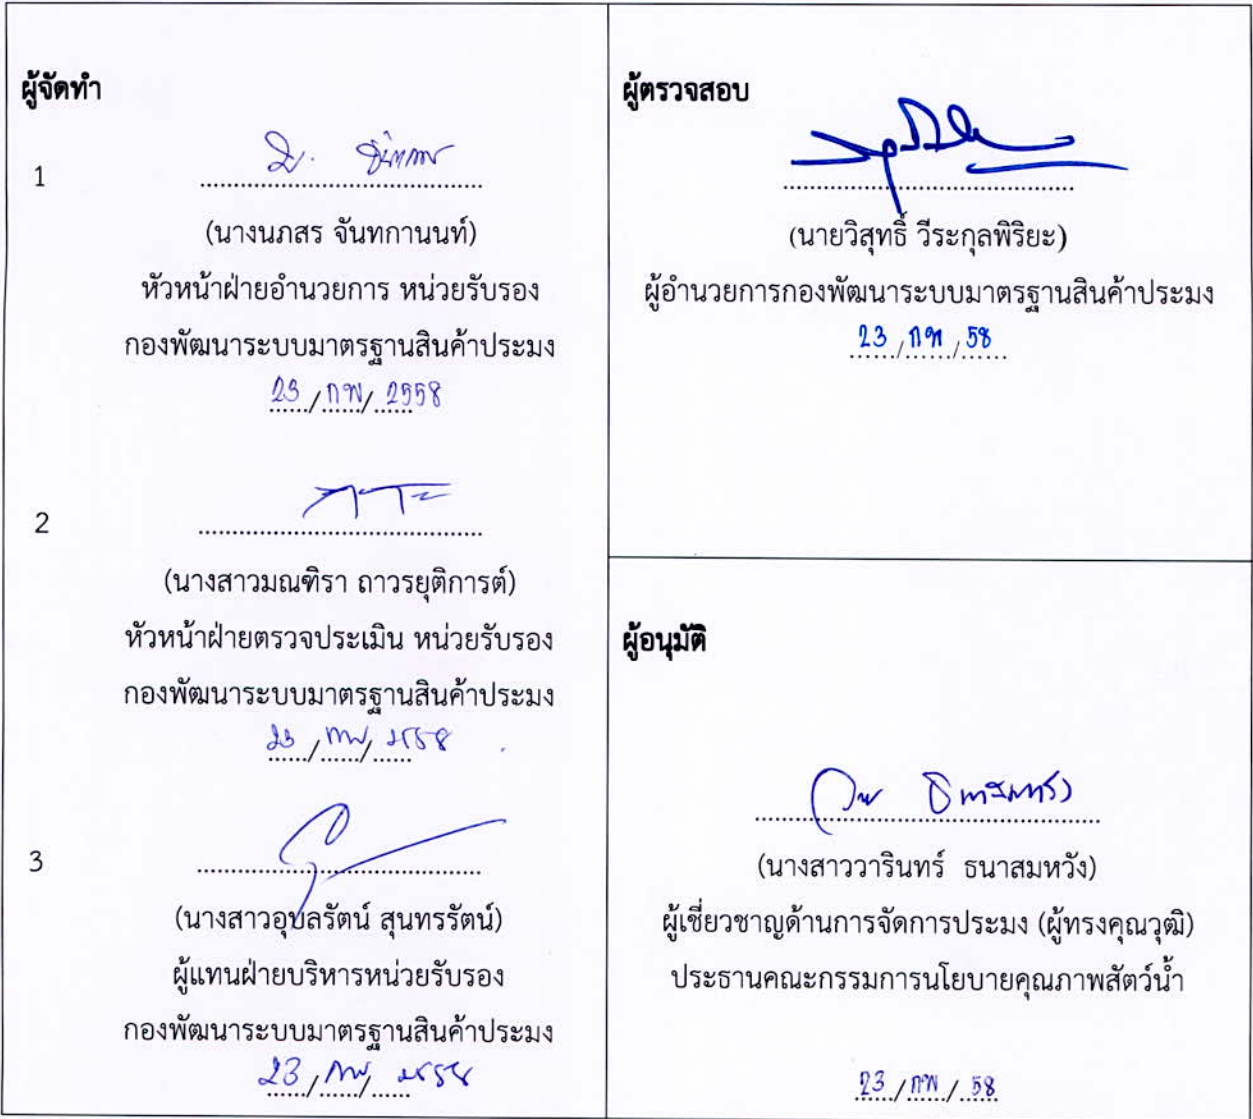 ผู้จัดทำ
1
(นางนภสร จันทกานนท์)
หัวหน้าฝ่ายอำนวยการ หน่วยรับรอง
กองพัฒนาระบบมาตรฐานสินค้าประมง
23/กพ/2558
2
(นางสาวมณฑิรา ถาวรยุติการต์)
หัวหน้าฝ่ายตรวจประเมิน หน่วยรับรอง
กองพัฒนาระบบมาตรฐานสินค้าประมง
23/กพ/2558
3
(นางสาวอุบลรัตน์ สุนทรรัตน์)
ผู้แทนฝ่ายบริหารหน่วยรับรอง
กองพัฒนาระบบมาตรฐานสินค้าประมง
23/กพ/2558
ผู้ตรวจสอบ
(นายวิสุทธิ์ วีระกุลพิริยะ)
ผู้อำนวยการกองพัฒนาระบบมาตรฐานสินค้าประมง
23/กพ/58
ผู้อนุมัติ
(นางสาววารินทร์ ธนาสมหวัง)
ผู้เชี่ยวชาญด้านการจัดการประมง (ผู้ทรงคุณวุฒิ)
ประธานคณะกรรมการนโยบายคุณภาพสัตว์น้ำ
23/กพ/58